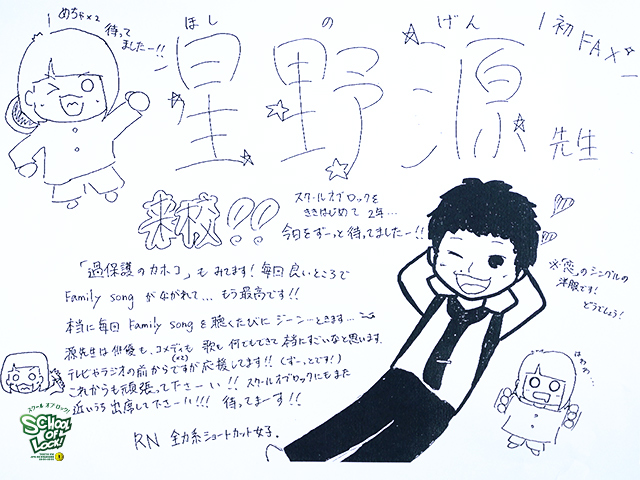 めちゃ×2
待ってましたー!!
ほし の げん
星野源 先生
初FAX☆
来校!?
スクールオブロックを
ききはじめて2年…
今日をずーっと待ってましたー!!
「過保護のカホコ」もみてます!毎回良いところで
Family songがながれて…もう最高です!!
本当に毎回Family songを聴くたびにジーン…ときます…
源先生は俳優も、コメディも歌も何でもできて本当にすごいなと思います。
テレビやラジオの前からですが応援してます!!(ずっとです!)
(×2)
これからも頑張って下さーい!!スクールオブロックにもまた
近いうち出席して下さーい!!!待ってまーす!!
RN 全力系ショートカット女子.
※「恋」のシングルの
洋服です!
どうでしょう!
はわわ…
スクールオブロック!
SCHOOL OF LOCK!